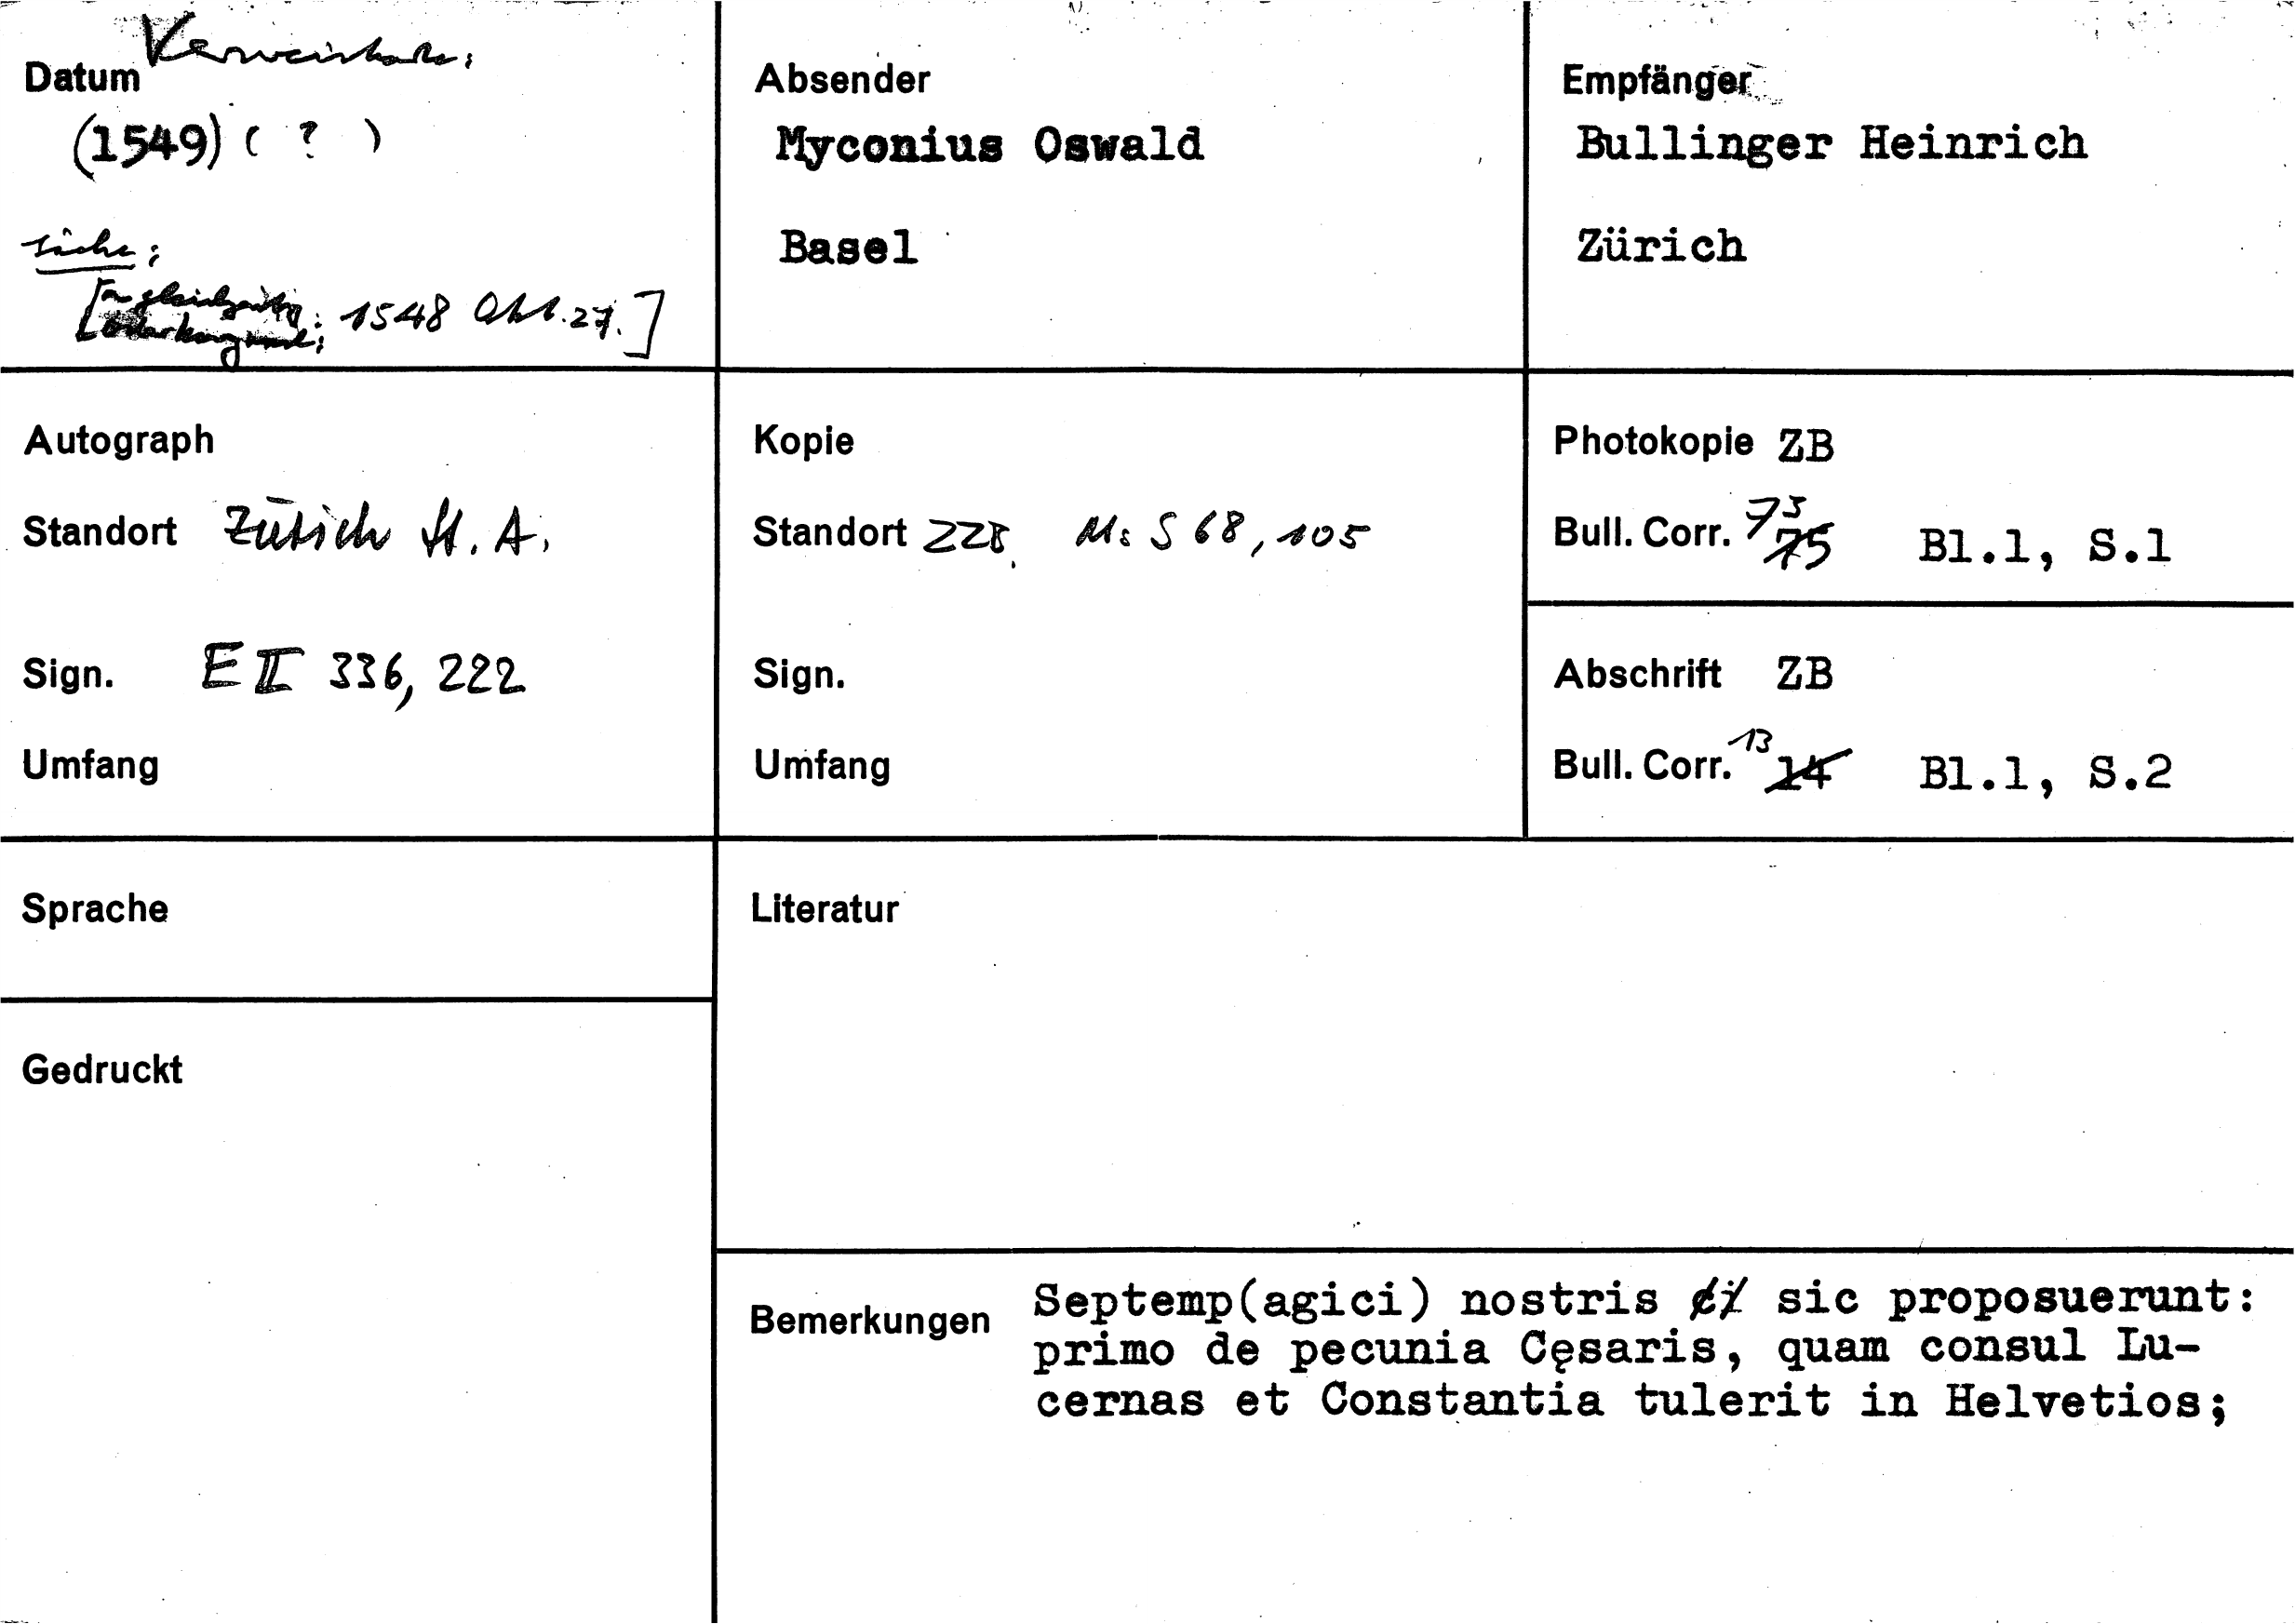 Verweiskarte:
Datum
(1549) ( ? )
siehe:
1548 Okt. 27.]
Absender
Myconius Oswald
Basel
Empfänger
Bullinger Heinrich
Zürich
Autograph
Standort Zürich St. A.
Sign. E II 336, 222
Umfang
Kopie
Standort ZZB. Ms S 68, 105
Sign.
Umfang
Photokopie ZB
Bull. Corr. 73 75 Bl.1, S.1
Abschrift ZB
Bull. Corr. 13 14 Bl.1, S.2
Sprache
Gedruckt
Literatur
Bemerkungen
Septemp(agici) nostris sic proposuerunt:
primo de pecunia Cęsaris, quam consul Lu-
cernas et Constantia tulerit in Helvetios;